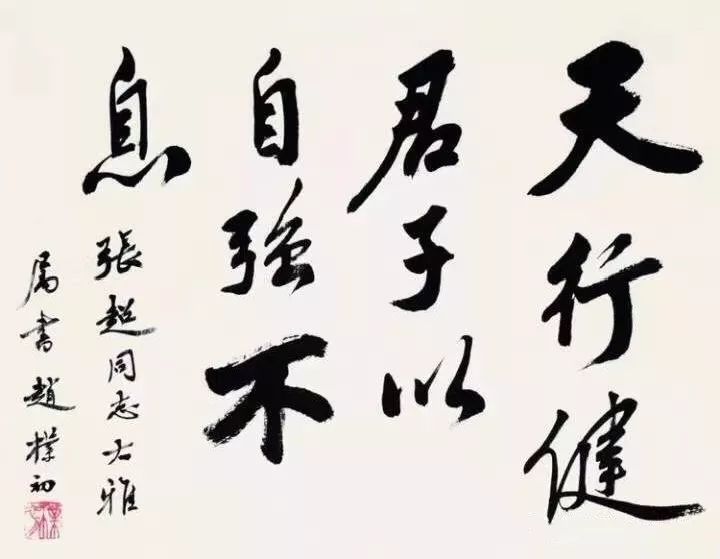 天行健
君子以
自強不
息
張超同志大雅
属書趙樸初